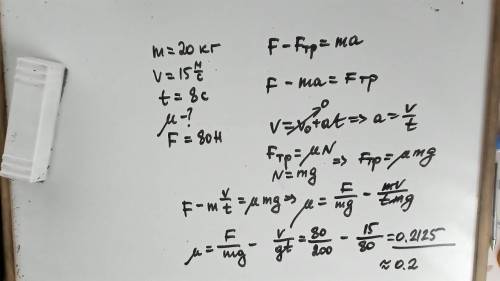 m = 20 кг
V = 15 м/с
t = 8 с
μ - ?
F = 80 Н
F - Fтр = ma
F - ma = Fтр
V = V₀ + at => a = V/t
0
Fтр = μN
N = mg
=> Fтр = μmg
F - m V/t = μmg => μ = F/mg - mV/tmg
μ = F/mg - V/gt = 80/200 - 15/80 = 0.2125
≈ 0.2